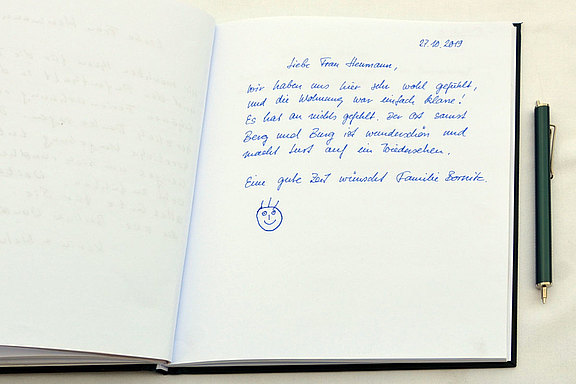 27.10.2019
Liebe Frau Heumann,
wir haben uns hier sehr wohl gefühlt,
und die Wohnung war einfach klasse!
Es hat an nichts gefehlt. Der Ort samst
Berg und Burg ist wunderschön und
macht Lust auf ein Wiedersehen.
Eine gute Zeit wünscht Familie